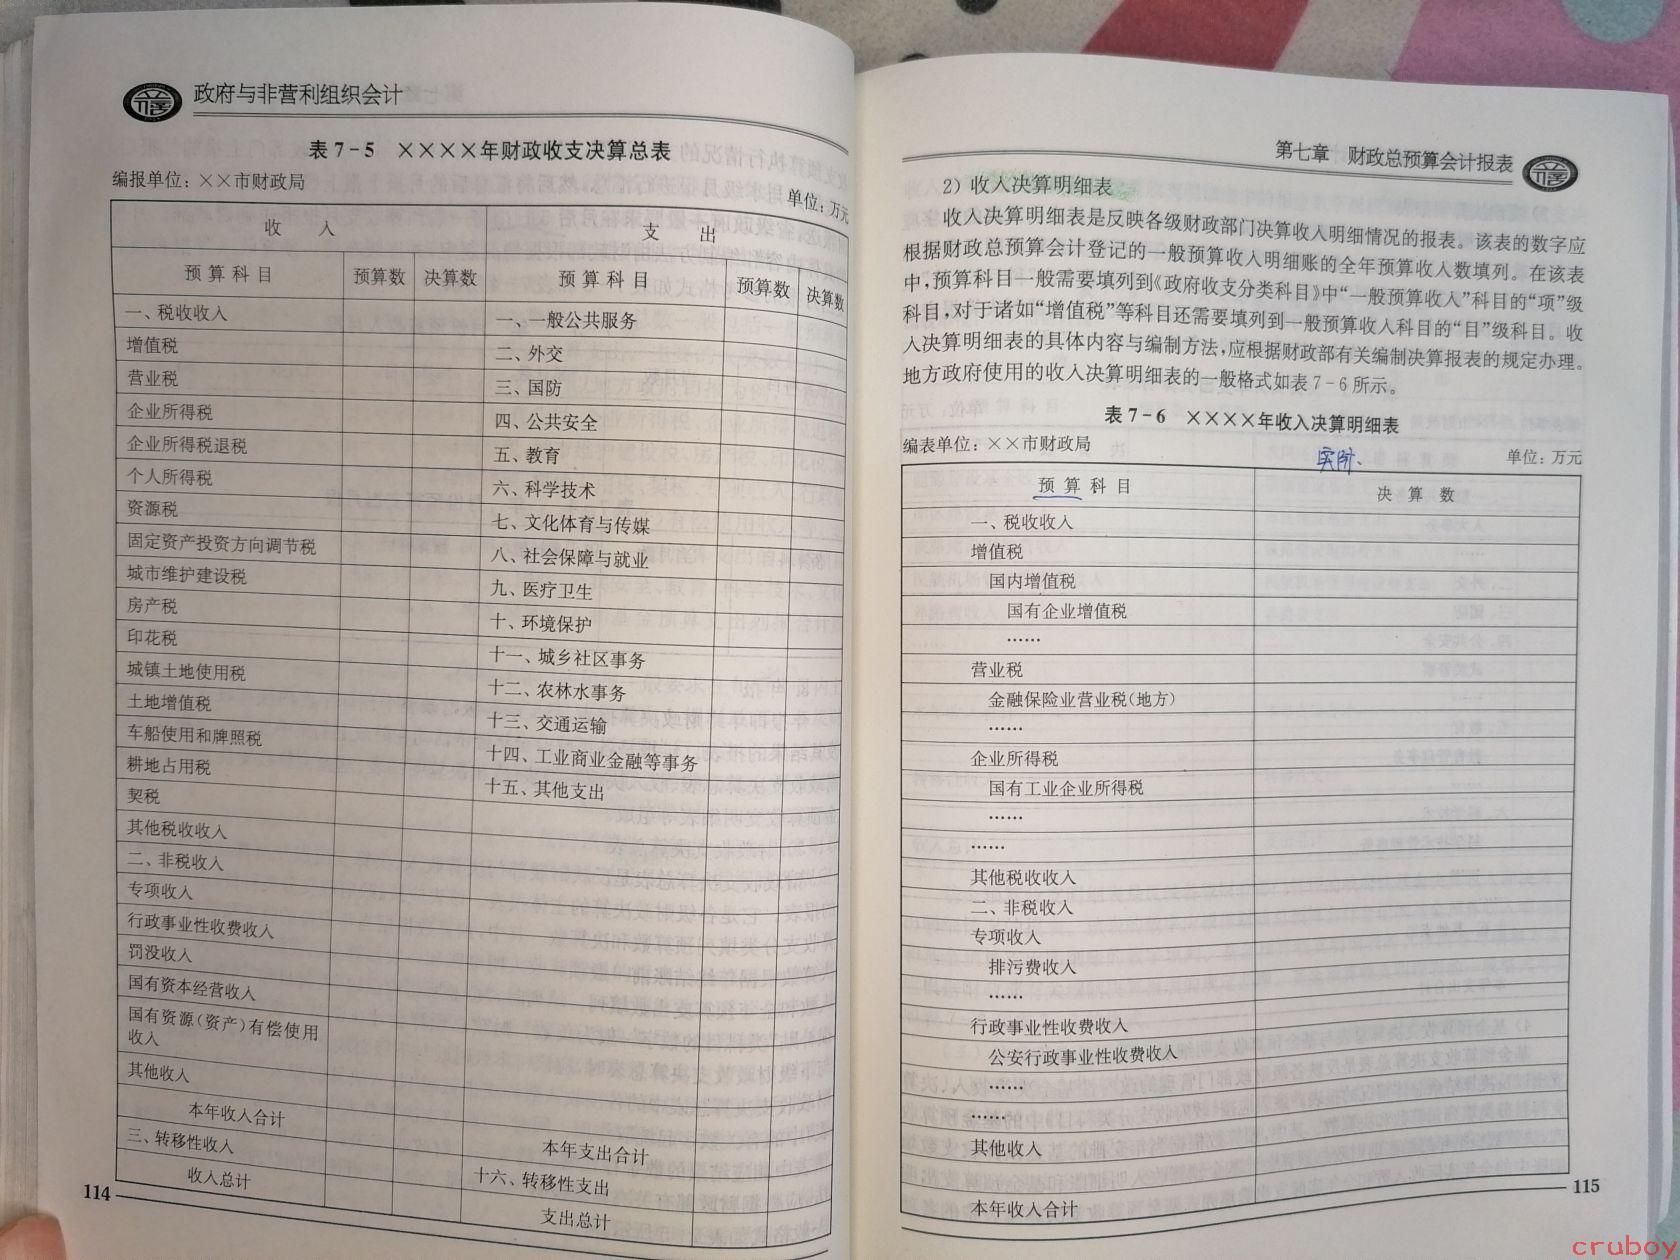 政府与非营利组织会计
表7-5 ××××年财政收支决算总表
编报单位：××市财政局 单位：万元
收 入 支 出
预算科目 预算数 决算数 预算科目 预算数 决算数
一、税收收入 一、一般公共服务
增值税 二、外交
营业税 三、国防
企业所得税 四、公共安全
企业所得税退税 五、教育
个人所得税 六、科学技术
资源税 七、文化体育与传媒
固定资产投资方向调节税 八、社会保障与就业
城市维护建设税 九、医疗卫生
房产税 十、环境保护
印花税 十一、城乡社区事务
城镇土地使用税 十二、农林水事务
土地增值税 十三、交通运输
车船使用和牌照税 十四、工业商业金融等事务
耕地占用税 十五、其他支出
契税
其他税收收入
二、非税收入
专项收入
行政事业性收费收入
罚没收入
国有资本经营收入
国有资源(资产)有偿使用
收入
其他收入
本年收入合计 本年支出合计
三、转移性收入 十六、转移性支出
收入总计 支出总计
114
第七章 财政总预算会计报表
2) 收入决算明细表
收入决算明细表是反映各级财政部门决算收入明细情况的报表。该表的数字应
根据财政总预算会计登记的一般预算收入明细账的全年预算收入数填列。在该表
中,预算科目一般需要填列到《政府收支分类科目》中“一般预算收入”科目的“项”级
科目,对于诸如“增值税”等科目还需要填列到一般预算收入科目的“目”级科目。收
入决算明细表的具体内容与编制方法,应根据财政部有关编制决算报表的规定办理。
地方政府使用的收入决算明细表的一般格式如表7-6所示。
表7-6 ××××年收入决算明细表
编表单位：××市财政局 单位：万元
实际
预算科目 决算数
一、税收收入
增值税
国内增值税
国有企业增值税
……
营业税
金融保险业营业税(地方)
……
企业所得税
国有工业企业所得税
……
……
其他税收收入
二、非税收入
专项收入
排污费收入
……
行政事业性收费收入
公安行政事业性收费收入
……
……
其他收入
本年收入合计
115
cruboy